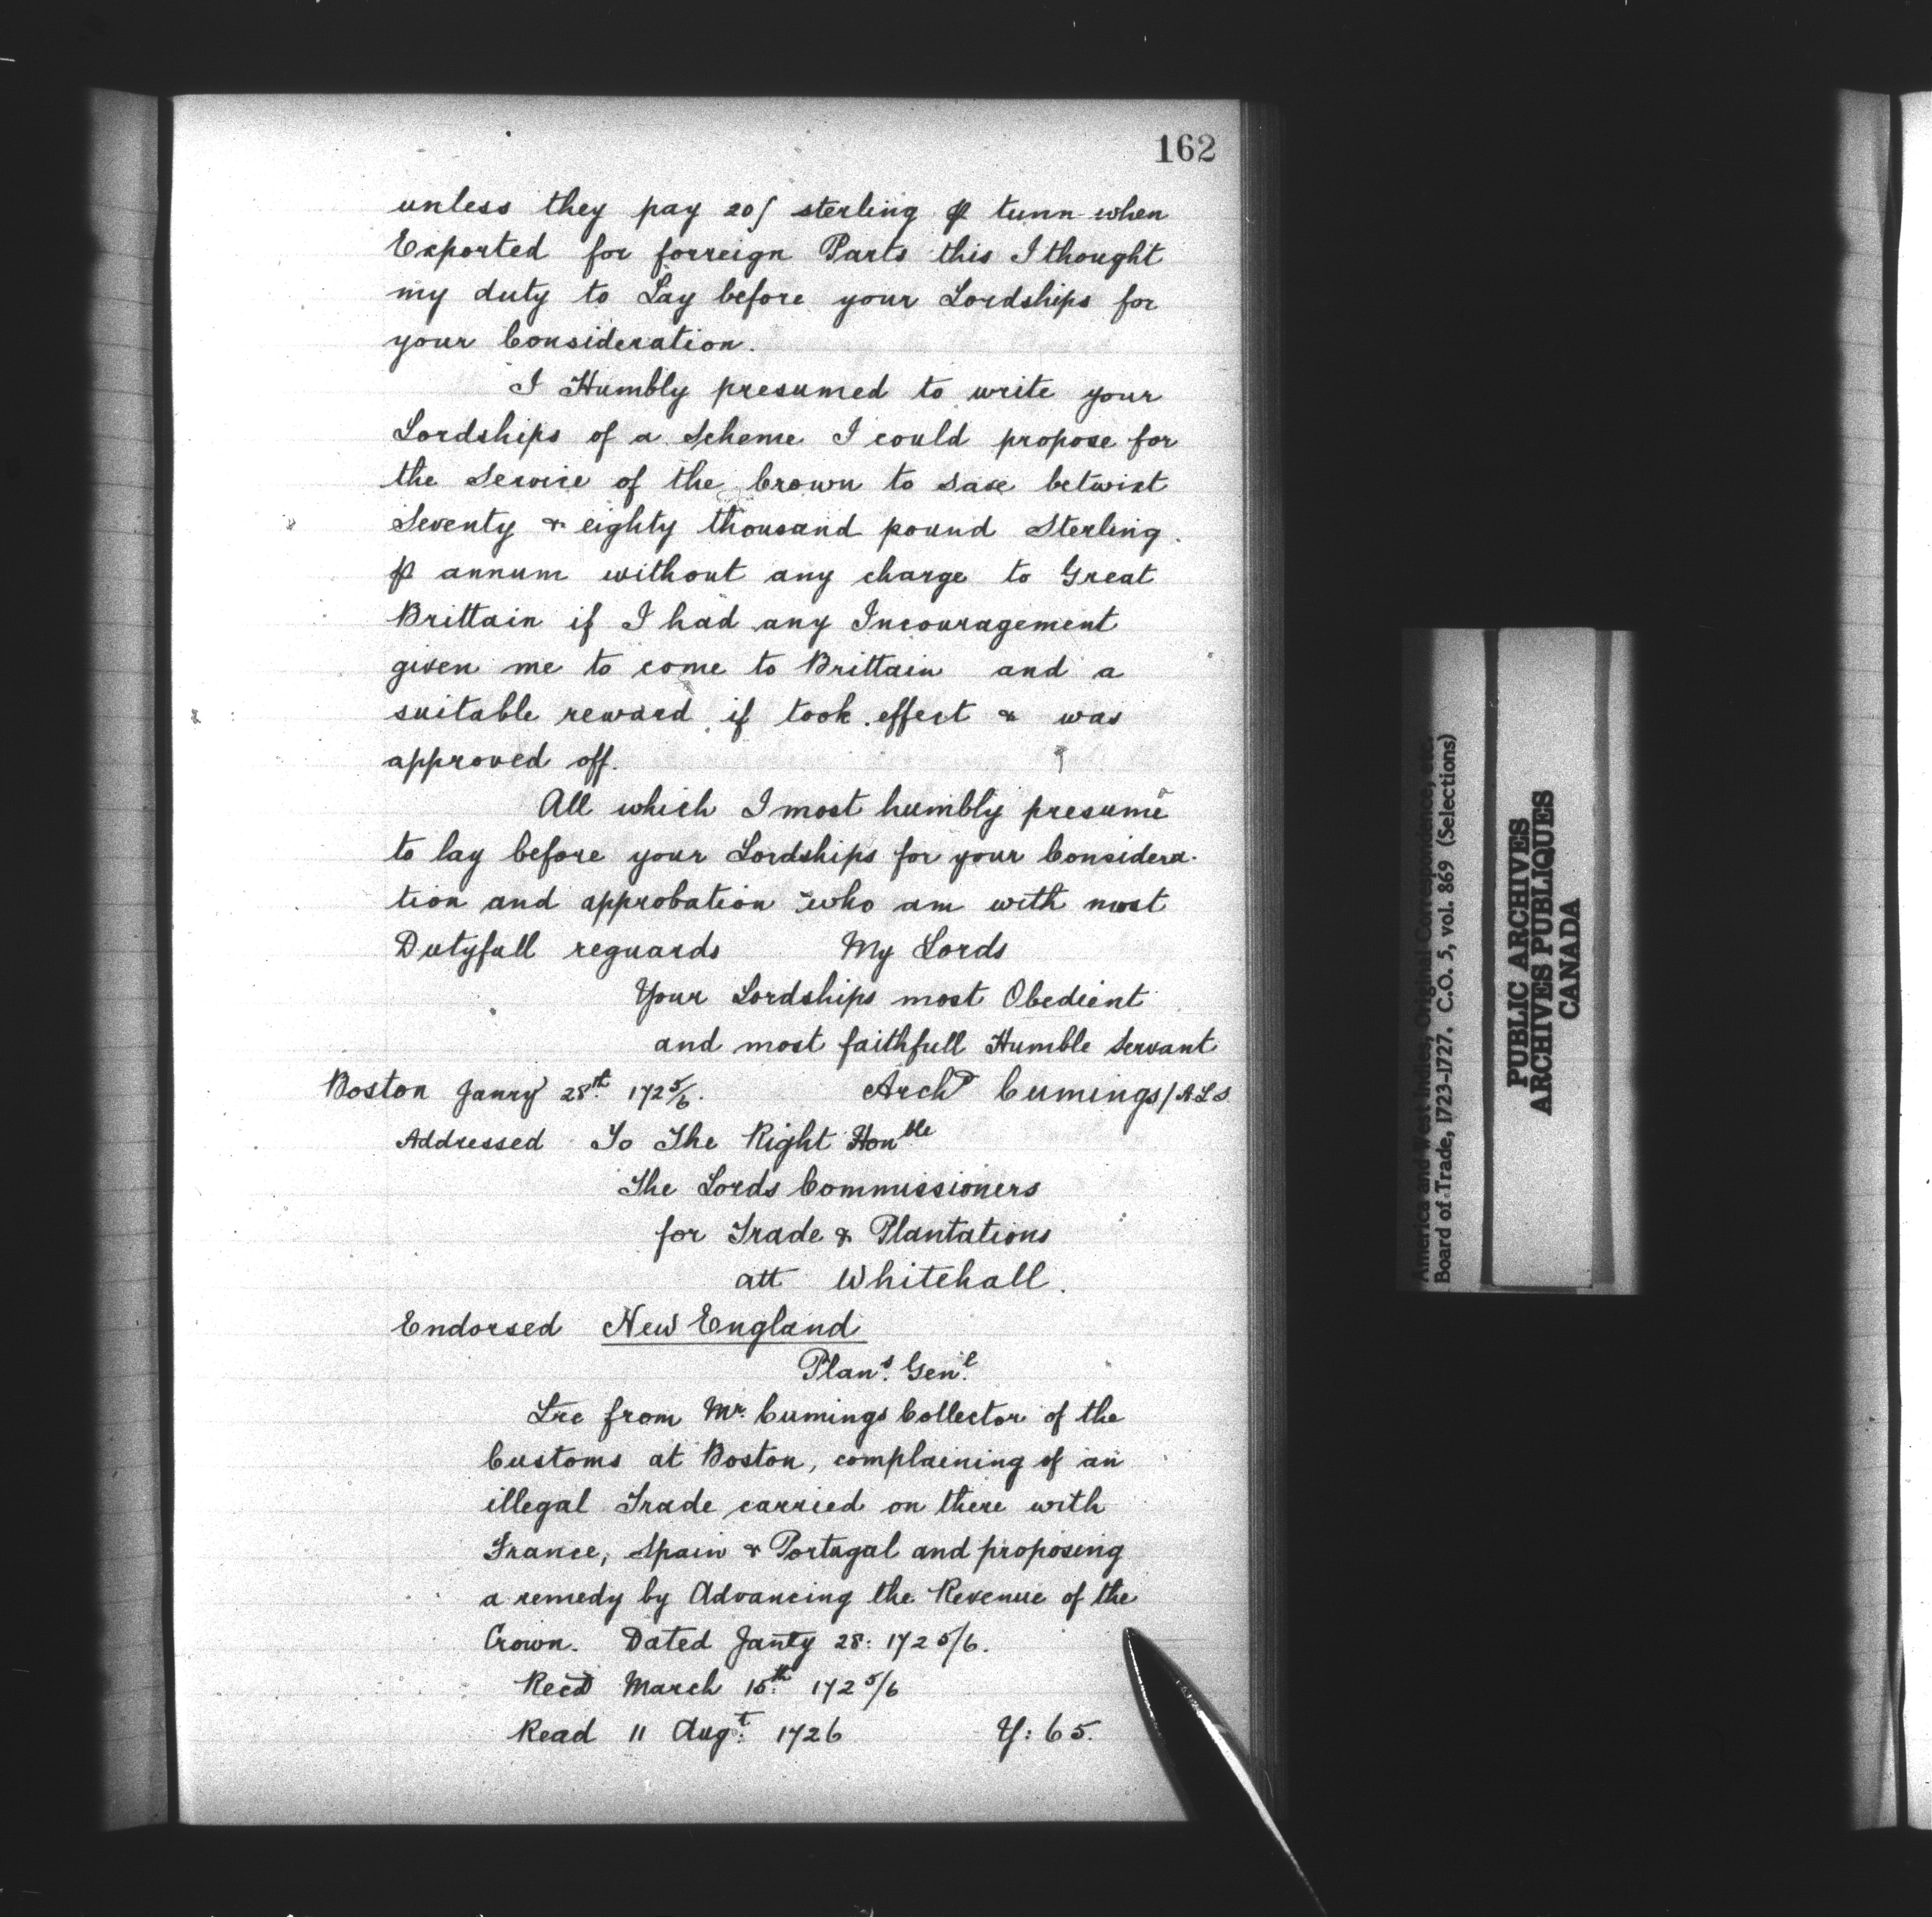 162
unless they pay 20/ sterling ⅌ tunn when
Exported for forreign Parts this I thought
my duty to Lay before your Lordships for
your Consideration.
I Humbly presumed to write your
Lordships of a Scheme I could propose for
the Service of the Crown to save betwixt
Seventy & eighty thousand pound Sterling
⅌ annum without any charge to Great
Brittain if I had any Incouragement
given me to come to Brittain and a
suitable reward if took effect & was
approved off.
All which I most humbly presume
to lay before your Lordships for your Considera-
tion and approbation who am with most
Dutyfull reguards My Lords
Your Lordships most Obedient
and most faithfull Humble Servant
Boston Janry 28th 172 5/6. Archd Cumings/ALS
Addressed To The Right Honble
The Lords Commissioners
for Trade & Plantations
att Whitehall.
Endorsed New England
Plans. Genl.
Lre from Mr. Cumings Collector of the
Customs at Boston, complaining of an
illegal Trade carried on there with
France, Spain & Portugal and proposing
a remedy by Advancing the Revenue of the
Crown. Dated Janry 28: 172 5/6.
Recd March 15th 172 5/6
Read 11 Augt: 1726 Y: 65.
America and West Indies, Original Correspondence, etc.
Board of Trade, 1723-1727. C.O. 5, vol. 869 (Selections)
PUBLIC ARCHIVES
ARCHIVES PUBLIQUES
CANADA